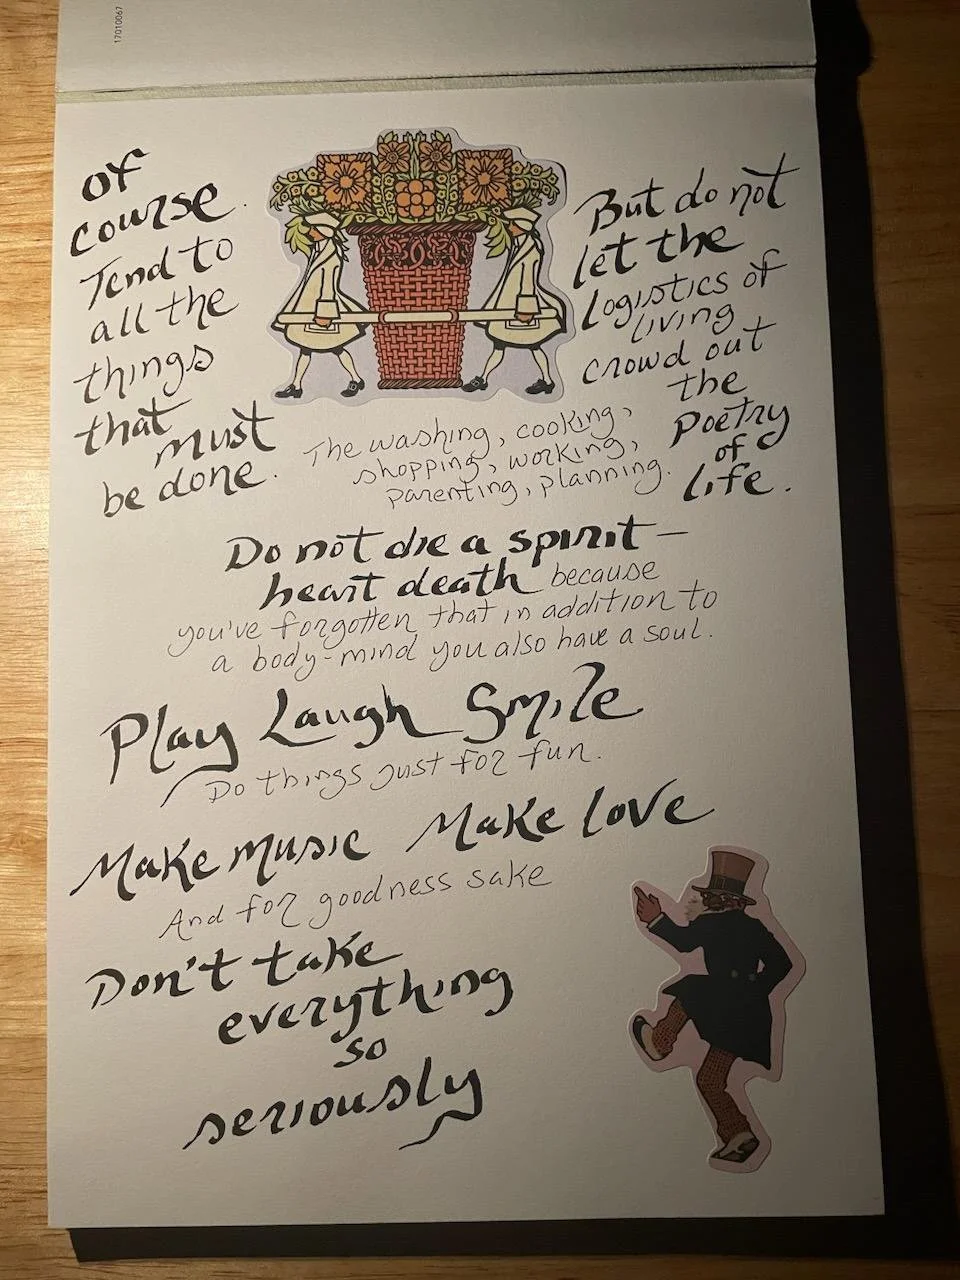 17010067
of
course.
Tend to
all the
things
that
must
be done.
The washing, cooking,
shopping, working,
parenting, planning.
But do not
let the
logistics of
living
crowd out
the
Poetry
of
life.
Do not die a spirit-
heart death because
you've forgotten that in addition to
a body-mind you also have a soul.
Play Laugh Smile
Do things just for fun.
Make music Make love
And for goodness sake
Don't take
everything
so
seriously